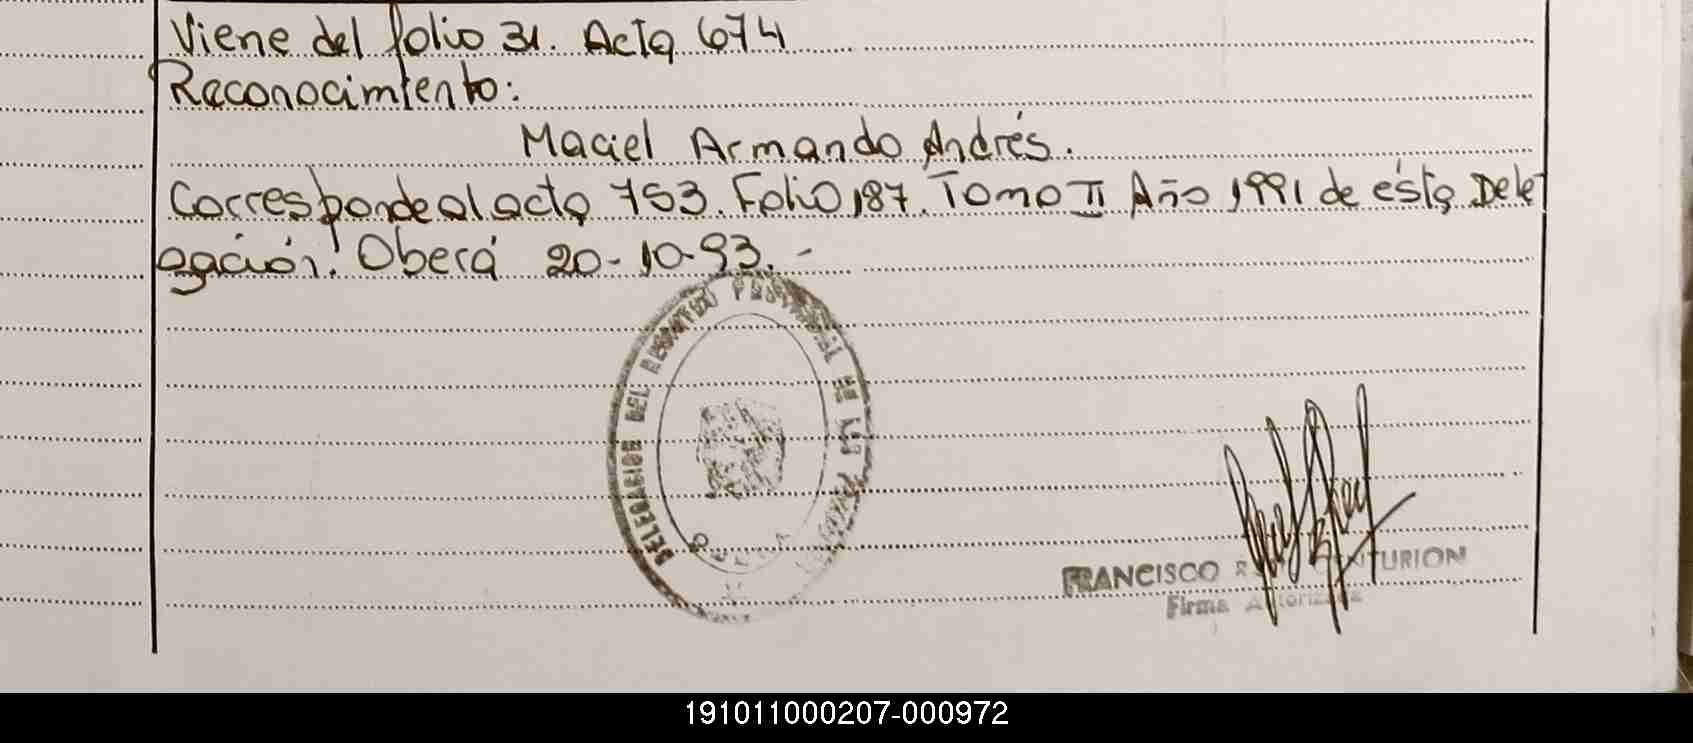 Viene del folio 31. Acta 674
Reconocimiento:
Maciel Armando Andrés.
Corresponde al acta 753. Folio 187. Tomo II Año 1991 de ésta Dele
gación. Oberá 20-10-93.-
DELEGACION DEL REGISTRO PROVINCIAL DE LAS
FRANCISCO TURION
Firma Autorizada
191011000207-000972